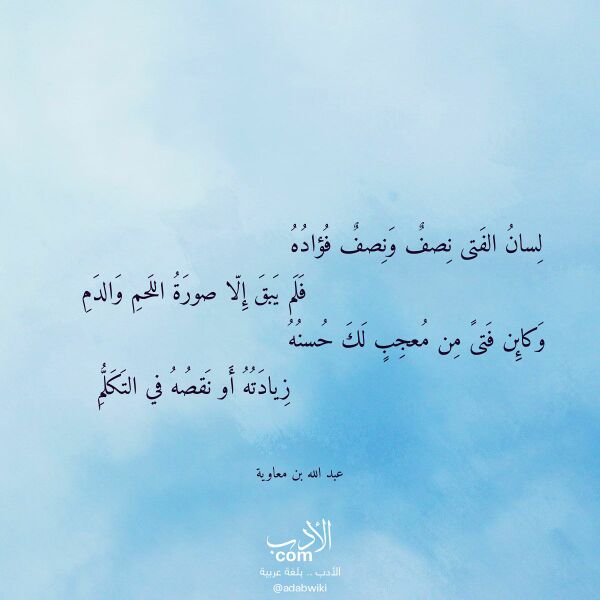 لِسانُ الفَتى نِصفٌ وَنِصفٌ فُؤادُهُ
فَلَم يَبقَ إِلّا صورَةُ اللَحمِ وَالدَمِ
وَكائِن فَتىً مِن مُعجِبٍ لَكَ حُسنُهُ
زِيادَتُهُ أَو نَقصُهُ في التَكَلُّمِ
عبد الله بن معاوية
الأدب
com
الأدب .. بلغة عربية
@adabwiki